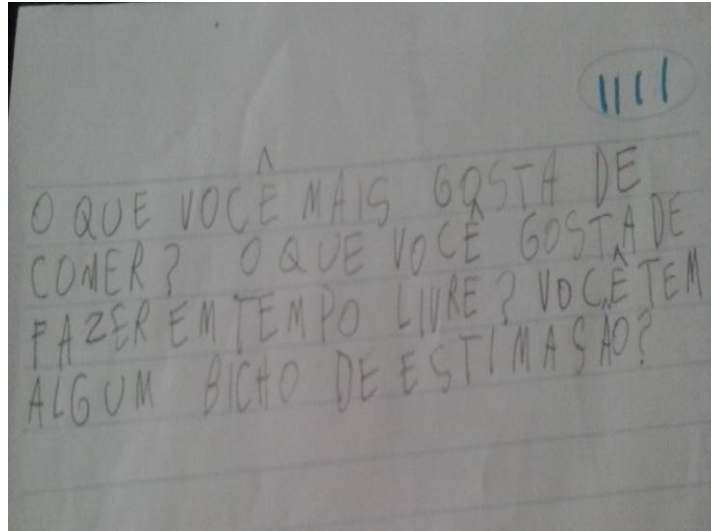 O QUE VOCÊ MAIS GOSTA DE
COMER? O QUE VOCÊ GOSTA DE
FAZER EM TEMPO LIVRE? VOCÊ TEM
ALGUM BICHO DE ESTIMASÃO?